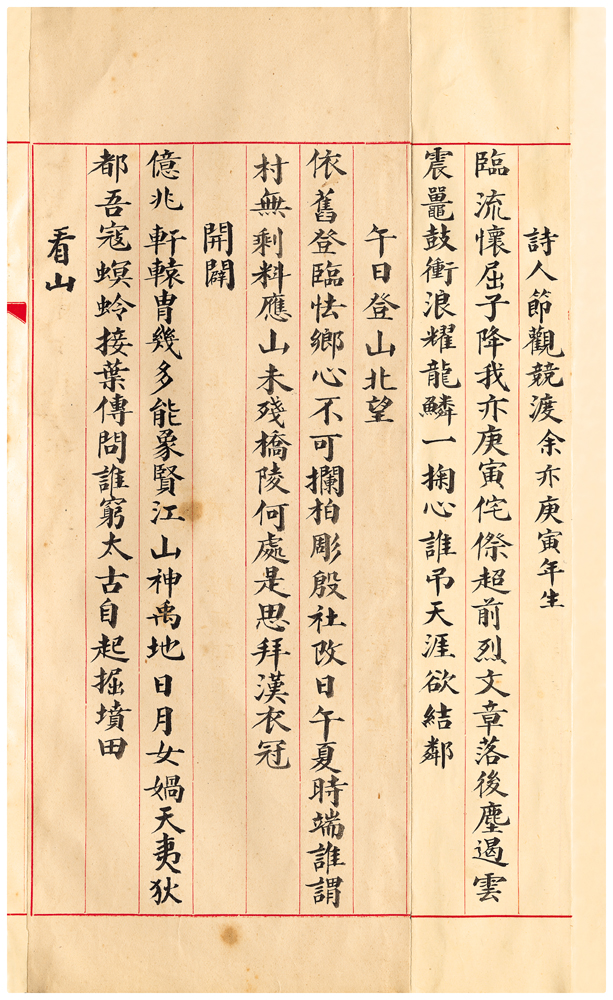 詩人節觀競渡余亦庚寅年生
臨流懷屈子降我亦庚寅侘傺超前烈文章落後塵遏雲
震鼉鼓衝浪耀龍鱗一掬心誰弔天涯欲結鄰
午日登山北望
依舊登臨怯鄉心不可攔柏彫殷社改日午夏時端誰謂
村無剩料應山未殘橋陵何處是思拜漢衣冠
開闢
億兆軒轅胄幾多能象賢江山神禹地日月女媧天夷狄
都吾寇螟蛉接葉傳問誰窮太古自起掘墳田
看山